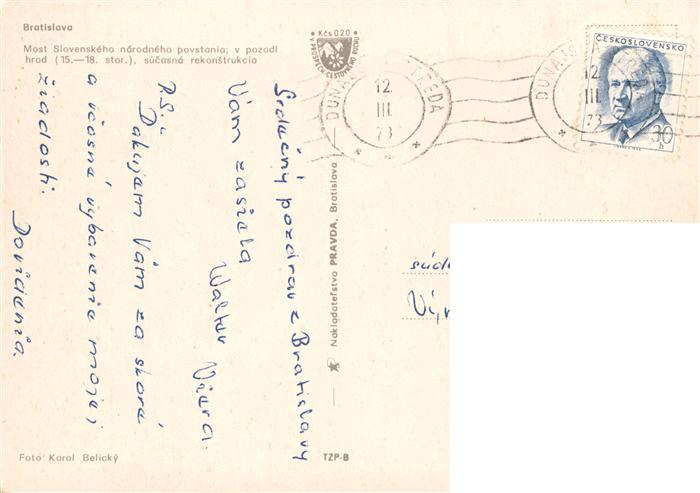 Bratislava
Most Slovenského národného povstania; v pozadí
hrad (15.—18. stor.), súčasná rekonštrukcia
Kčs 0,20
V PROSPECH CESTOVNÉHO RUCHU
DUNAJSKÁ STREDA
12.
III.
73
DUNAJSKÁ STREDA
12.
III.
73
ČESKOSLOVENSKO
30
h
Srdečný pozdrav z Bratislavy
Vám zasiela
Walter Viera.
P.S.:
Ďakujem Vám za skoré
a včasné vybavenie mojej
žiadosti.
Dovidenia.
Nakladateľstvo PRAVDA, Bratislava
súd
Výr
Foto Karol Belický
TZP-B